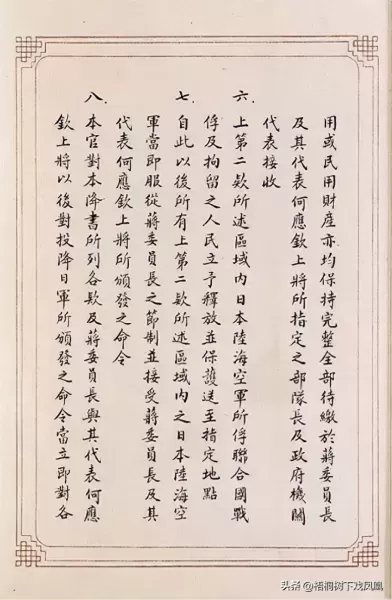 用或民用財產亦均保持完整全部待繳於蔣委員長
及其代表何應欽上將所指定之部隊長及政府機關
代表接收
六.上第二欵所述區域內日本陸海空軍所俘聯合國戰
俘及拘留之人民立予釋放並保護送至指定地點
七.自此以後所有上第二欵所述區域內之日本陸海空
軍當即服從蔣委員長之節制並接受蔣委員長及其
代表何應欽上將所頒發之命令
八.本官對本降書所列各欵及蔣委員長與其代表何應
欽上將以後對投降日軍所頒發之命令當立即對各
头条@梧桐树下戏凤凰